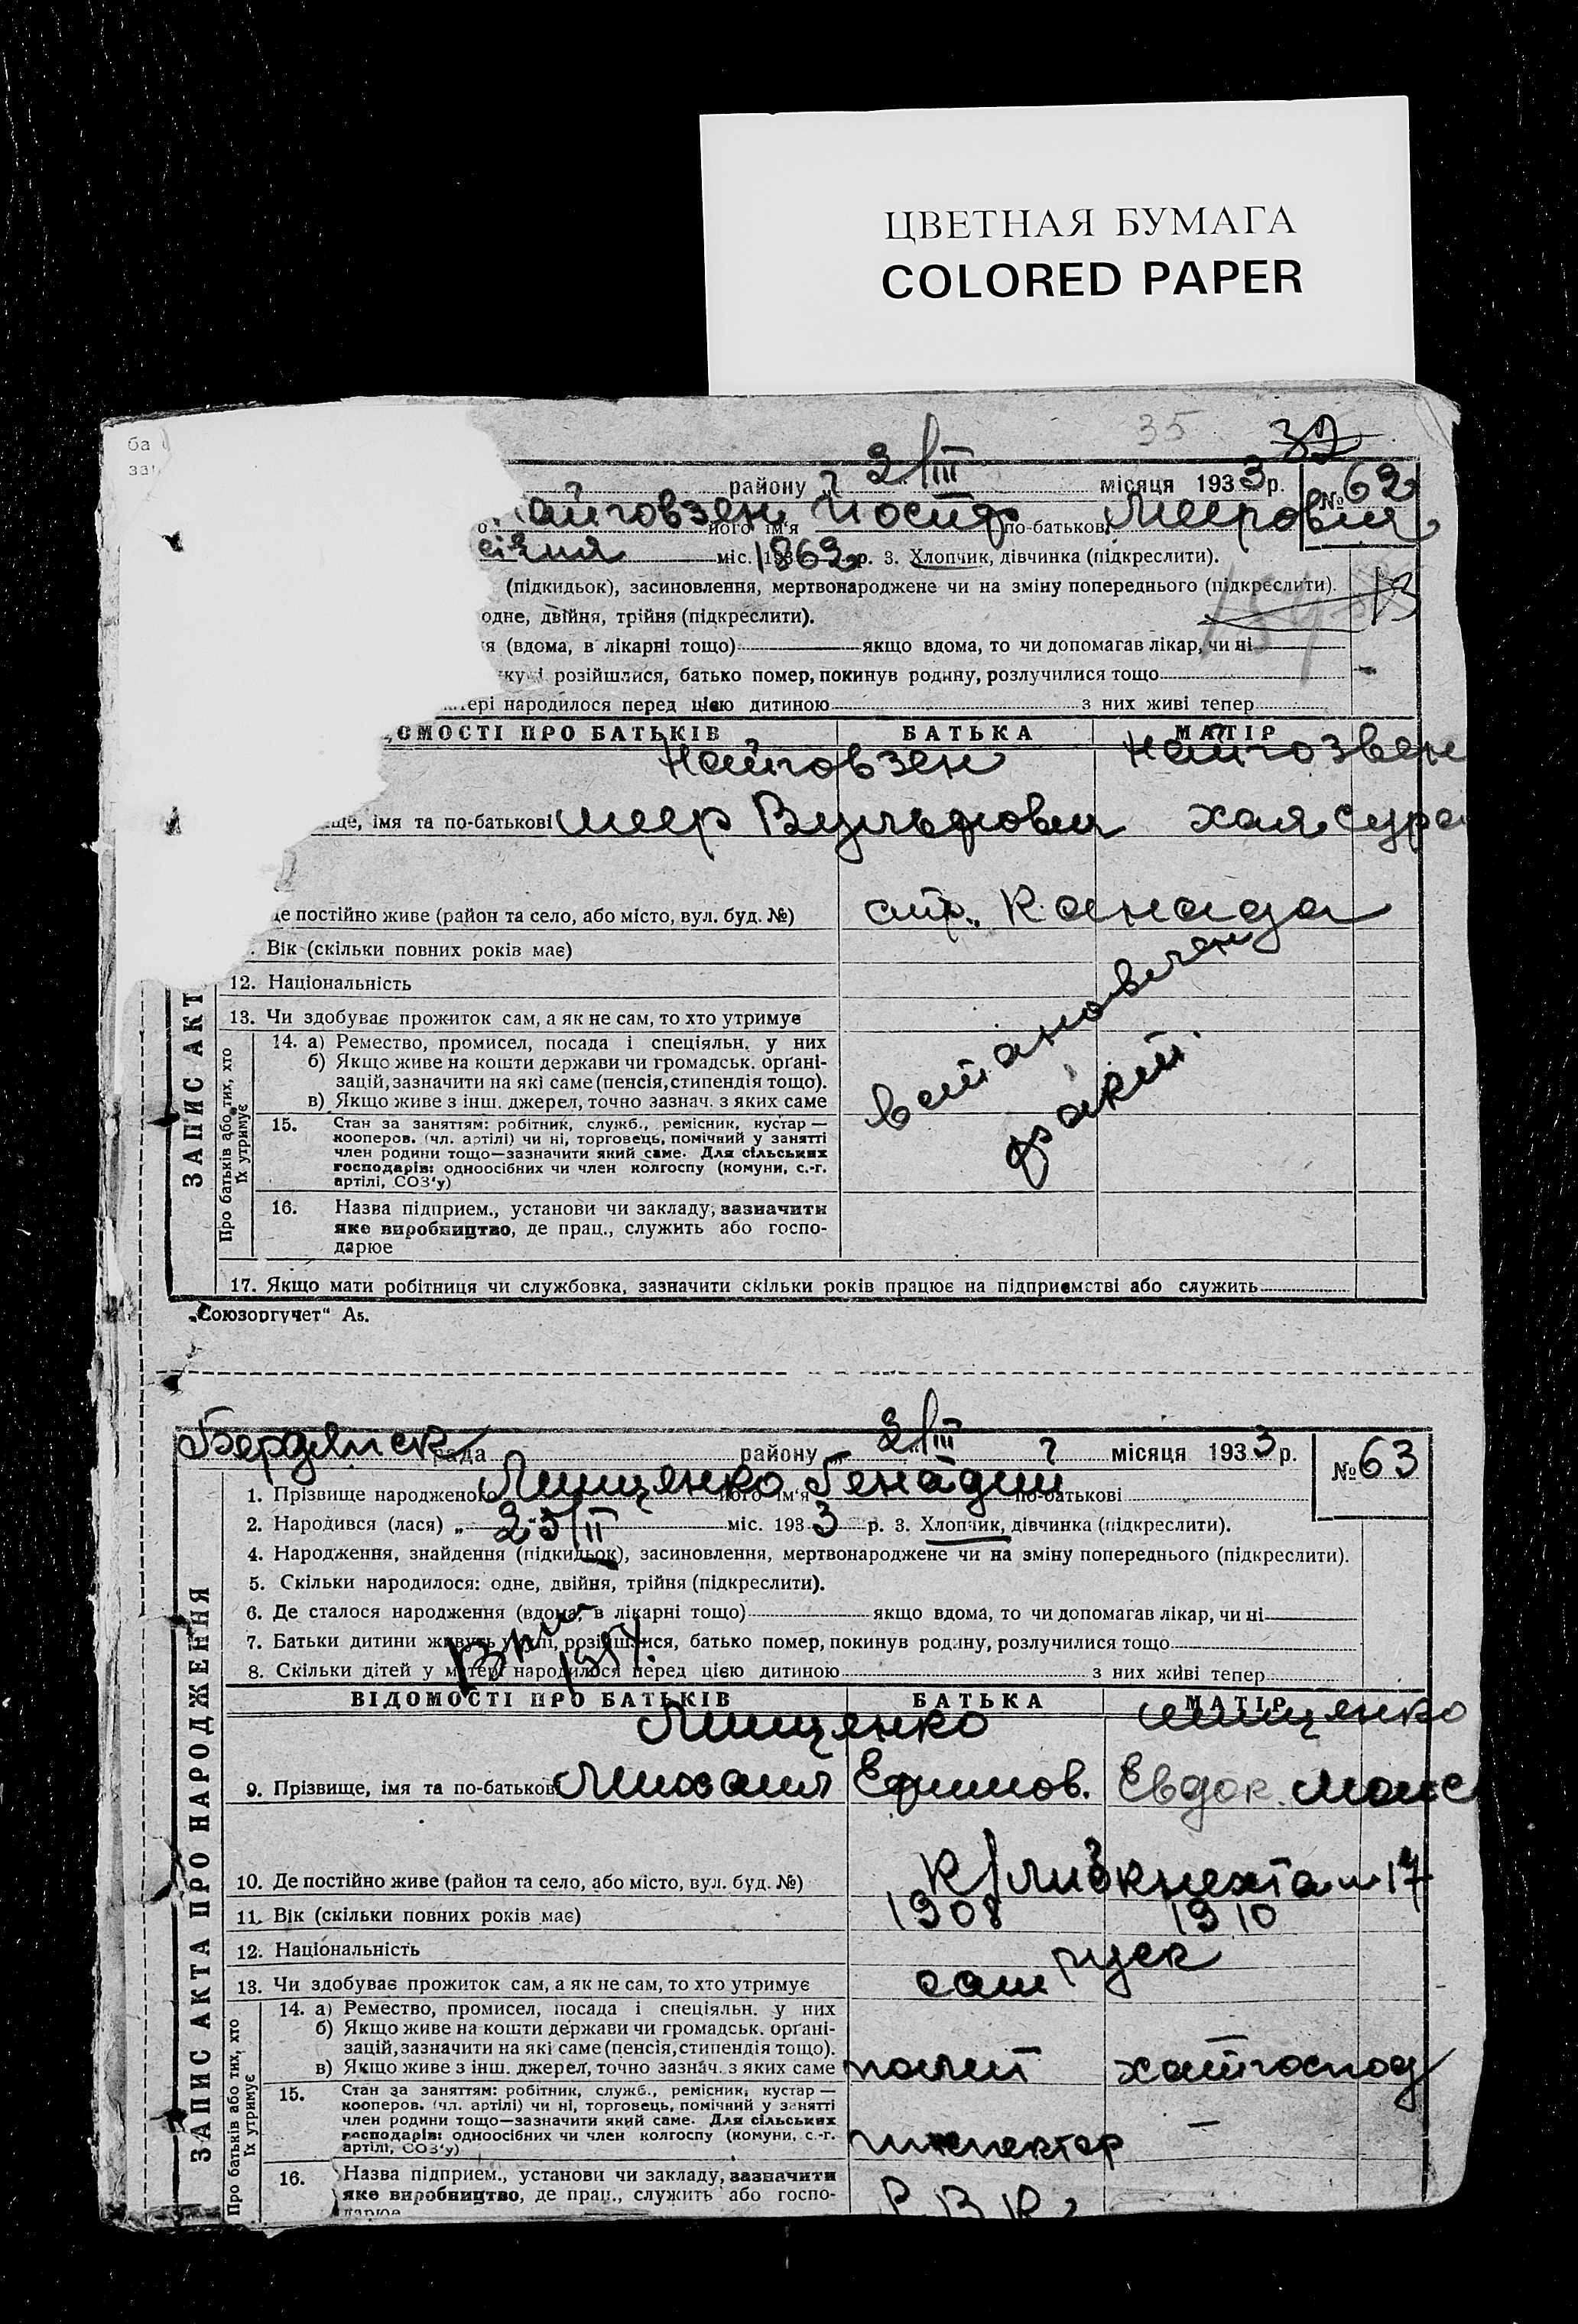 ЦВЕТНАЯ БУМАГА
COLORED PAPER
35 32
ба
району 2/III місяця 1933 р. № 62
його ім'я Иосиф по-батькові Меерович
січня міс. 1862 р. 3. Хлопчик, дівчинка (підкреслити).
(підкидьок), засиновлення, мертвонароджене чи на зміну попереднього (підкреслити).
одне, двійня, трійня (підкреслити).
(вдома, в лікарні тощо) якщо вдома, то чи допомагав лікар, чи ні
розійшлися, батько помер, покинув родину, розлучилися тощо
народилося перед цією дитиною з них живі тепер
ПРО БАТЬКІВ БАТЬКА МАТІР
Найговзен
імя та по-батькові Меер Вульфович Хая Сура
де постійно живе (район та село, або місто, вул. буд. №) стр. Канада
Вік (скільки повних років має)
12. Національність
13. Чи здобуває прожиток сам, а як не сам, то хто утримує
14. а) Ремество, промисел, посада і спеціяльн. у них
б) Якщо живе на кошти держави чи громадськ. органі-
зацій, зазначити на які саме (пенсія, стипендія тощо).
в) Якщо живе з інш. джерел, точно зазнач. з яких саме
15. Стан за заняттям: робітник, служб., ремісник, кустар —
кооперов. (чл. артілі) чи ні, торговець, помічний у занятті
член родини тощо—зазначити який саме. Для сільських
господарів: одноосібних чи член колгоспу (комуни, с.-г.
артілі, СОЗ'у)
16. Назва підприєм., установи чи закладу, зазначити
яке виробництво, де прац., служить або госпо-
дарює
17. Якщо мати робітниця чи службовка, зазначити скільки років працює на підприємстві або служить
Про батьків або тих, хто
їх утримує
ЗАПИС АКТ
„Союзоргучет" А5.
Бердянск рада району 2/III місяця 1933 р. № 63
1. Прізвище народженого Лищенко його ім'я Генадий по-батькові
2. Народився (лася) „ 25/II міс. 1933 р. 3. Хлопчик, дівчинка (підкреслити).
4. Народження, знайдення (підкидьок), засиновлення, мертвонароджене чи на зміну попереднього (підкреслити).
5. Скільки народилося: одне, двійня, трійня (підкреслити).
6. Де сталося народження (вдома, в лікарні тощо) якщо вдома, то чи допомагав лікар, чи ні
7. Батьки дитини живуть укупі, розійшлися, батько помер, покинув родину, розлучилися тощо
8. Скільки дітей у матері народилося перед цією дитиною з них живі тепер
ВІДОМОСТІ ПРО БАТЬКІВ БАТЬКА МАТІР
Лищенко Лищенко
9. Прізвище, імя та по-батькові Михаил Ефимов. Евдок. Моис
10. Де постійно живе (район та село, або місто, вул. буд. №) К/Либкнехта 17
11. Вік (скільки повних років має) 1908 1910
12. Національність руск
13. Чи здобуває прожиток сам, а як не сам, то хто утримує сам
14. а) Ремество, промисел, посада і спеціяльн. у них
б) Якщо живе на кошти держави чи громадськ. органі-
зацій, зазначити на які саме (пенсія, стипендія тощо).
в) Якщо живе з інш. джерел, точно зазнач. з яких саме полит хатгоспод
15. Стан за заняттям: робітник, служб., ремісник, кустар —
кооперов. (чл. артілі) чи ні, торговець, помічний у занятті
член родини тощо—зазначити який саме. Для сільських
господарів: одноосібних чи член колгоспу (комуни, с.-г.
артілі, СОЗ'у) инспектор —
16. Назва підприєм., установи чи закладу, зазначити
яке виробництво, де прац., служить або госпо- Р. В. К.
дарює
Про батьків або тих, хто
їх утримує
ЗАПИС АКТА ПРО НАРОДЖЕННЯ